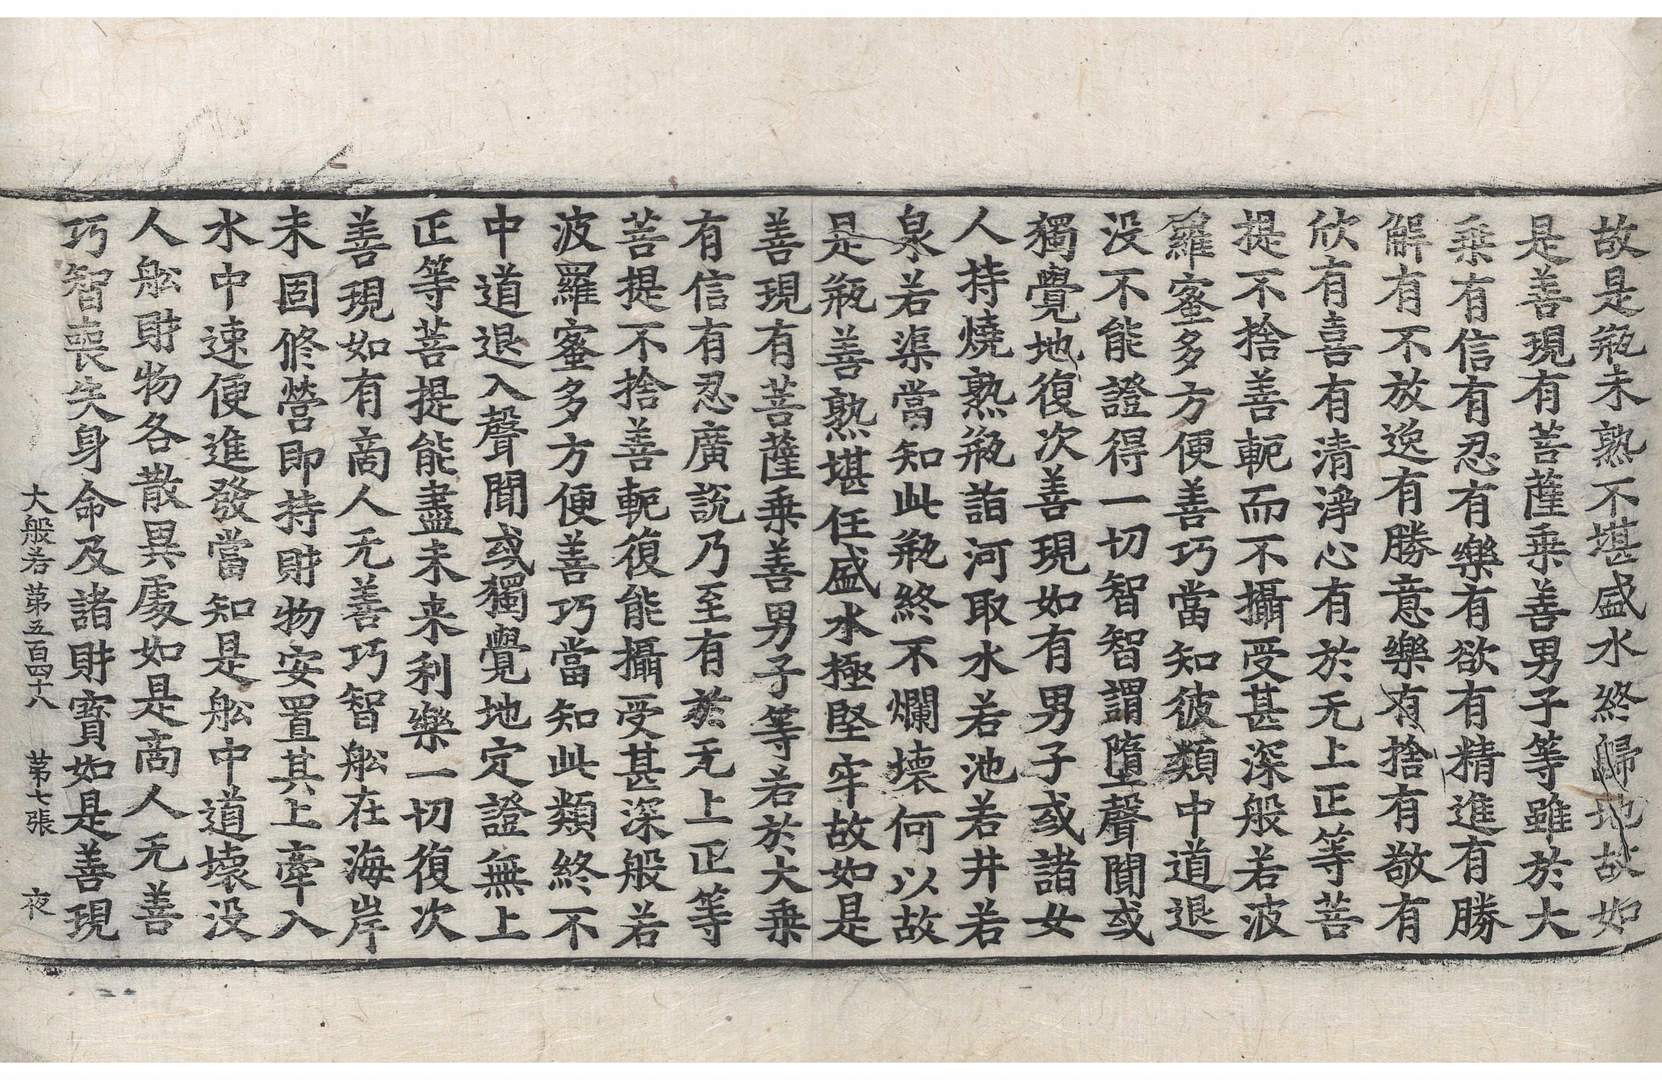 故是瓶未熟不堪盛水終歸地故如
是善現有菩薩乗善男子等雖於大
乗有信有忍有樂有欲有精進有勝
解有不放逸有勝意樂有捨有敬有
欣有喜有清淨心有於无上正等菩
提不捨善軛而不攝受甚深般若波
羅蜜多方便善巧當知彼類中道退
没不能證得一切智智謂墮聲聞或
獨覺地復次善現如有男子或諸女
人持燒熟瓶詣河取水若池若井若
泉若渠當知此瓶終不爛壞何以故
是瓶善熟堪任盛水極堅牢故如是
善現有菩薩乗善男子等若於大乗
有信有忍廣說乃至有於无上正等
菩提不捨善軛復能攝受甚深般若
波羅蜜多方便善巧當知此類終不
中道退入聲聞或獨覺地定證無上
正等菩提能盡未来利樂一切復次
善現如有商人无善巧智舩在海岸
未固修營即持財物安置其上牽入
水中速便進發當知是舩中道壞没
人舩財物各散異處如是商人无善
巧智喪失身命及諸財寶如是善現
大般若第五百四十八 第七張 夜